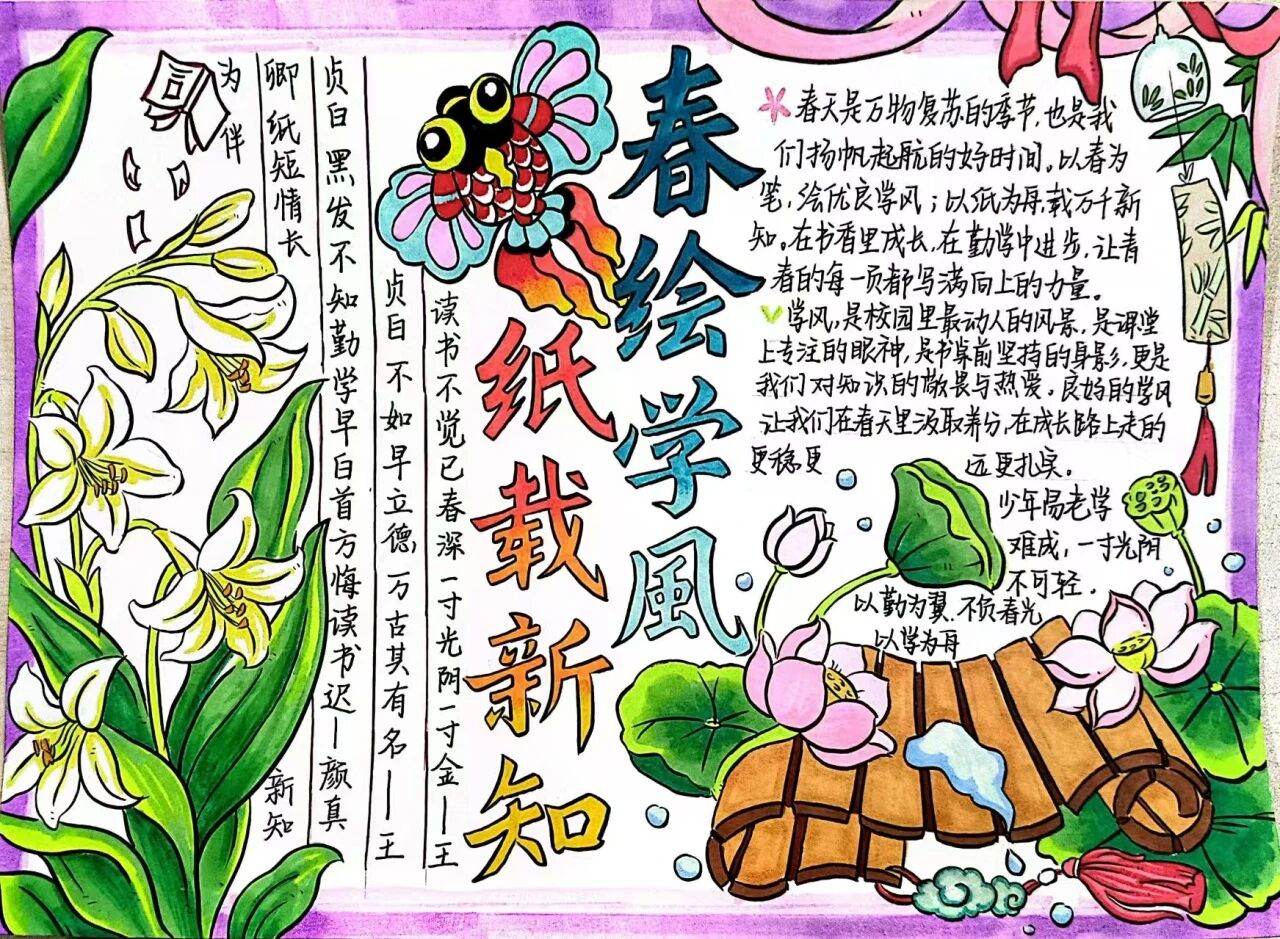 春绘学風
纸载新知
春天是万物复苏的季节,也是我
们扬帆起航的好时间。以春为
笔,绘优良学风;以纸为舟,载万千新
知。在书香里成长,在勤学中进步,让青
春的每一页都写满向上的力量。
学风,是校园里最动人的风景,是课堂
上专注的眼神,是书桌前坚持的身影,更是
我们对知识的敬畏与热爱。良好的学风
让我们在春天里汲取养分,在成长路上走的
更稳,更远更扎实。
少年易老学
难成,一寸光阴
不可轻.
以勤为翼.不负春光
以学为舟
读书不觉已春深一寸光阴一寸金—王
贞白不如早立德,万古其有名——王
贞白黑发不知勤学早白首方悔读书迟—颜真
卿 纸短情长 新知
为伴